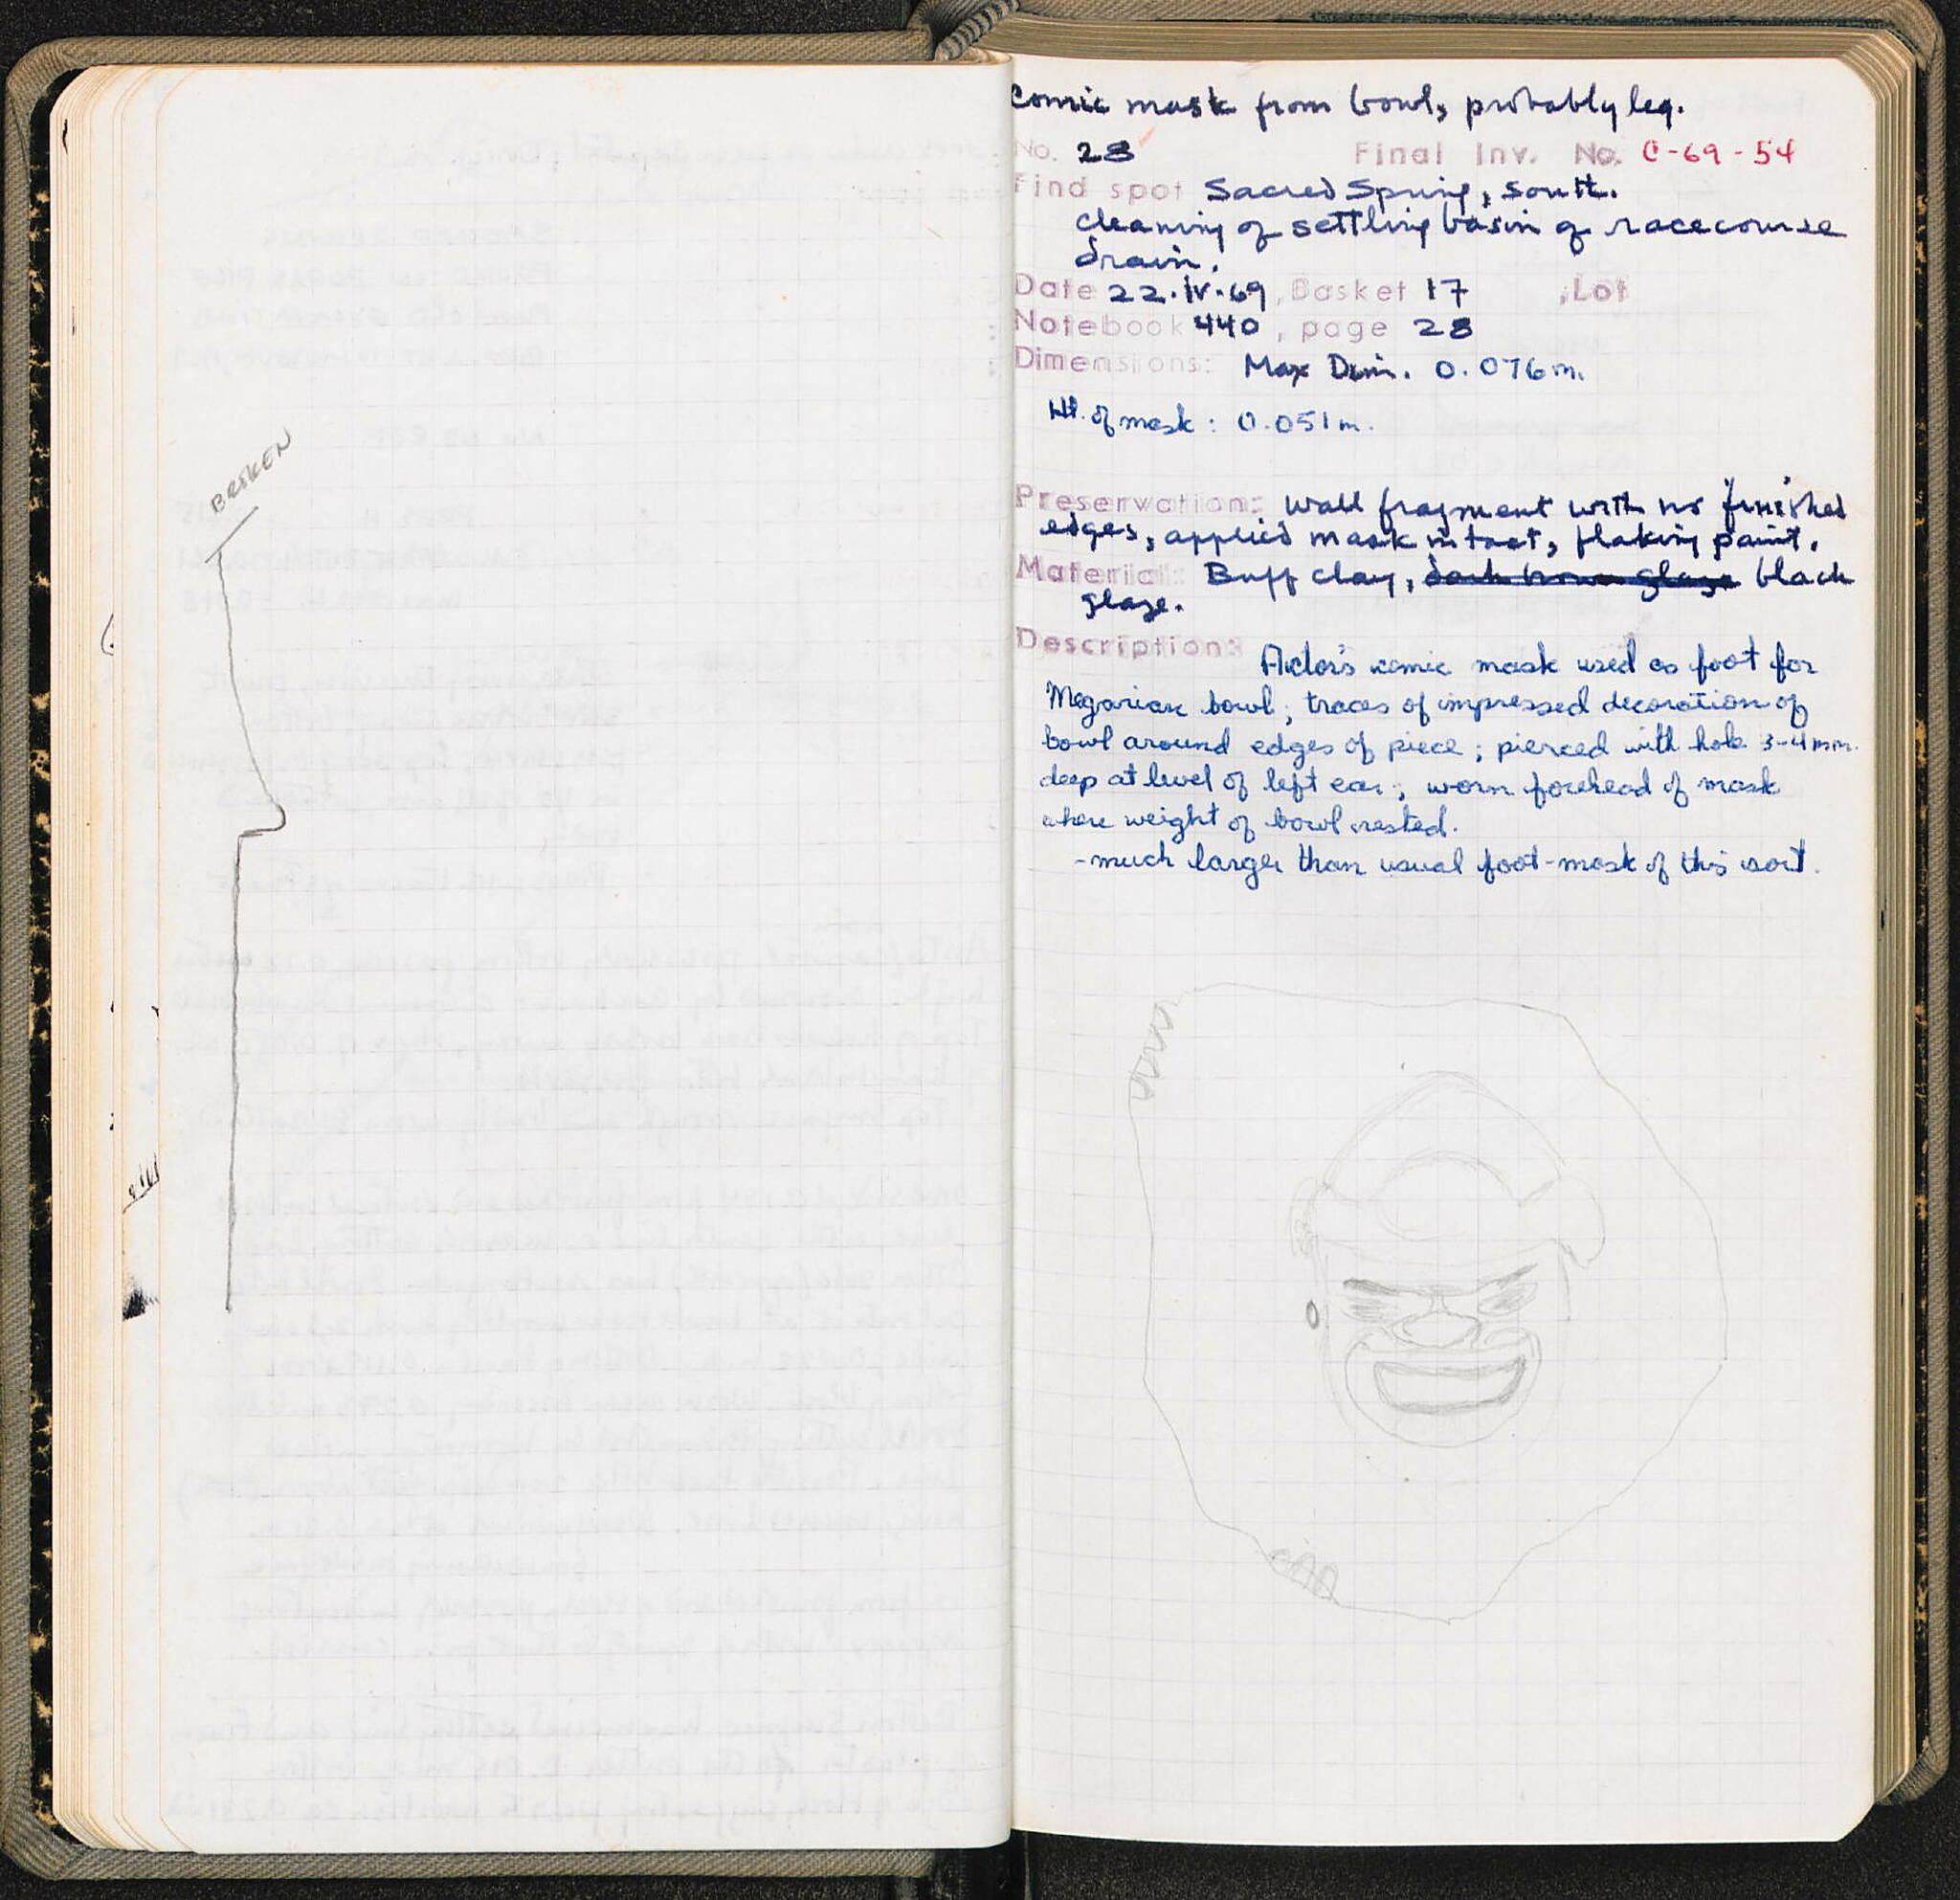 BROKEN
Comic mask from bowl, probably leg.
No. 28 Final Inv. No. C-69-54
Find spot Sacred Spring, South.
cleaning of settling basin of racecourse
drain.
Date 22.IV.69, Basket 17 , Lot
Notebook 440, page 28
Dimensions: Max Dim. 0.076 m.
Ht. of mask: 0.051 m.
Preservation: Wall fragment with no finished
edges, applied mask intact, flaking paint.
Material: Buff clay, dark brown glaze black
glaze.
Description: Actor's comic mask used as foot for
Megarian bowl; traces of impressed decoration of
bowl around edges of piece; pierced with hole 3-4 mm.
deep at level of left ear; worn forehead of mask
where weight of bowl rested.
-much larger than usual foot-mask of this sort.